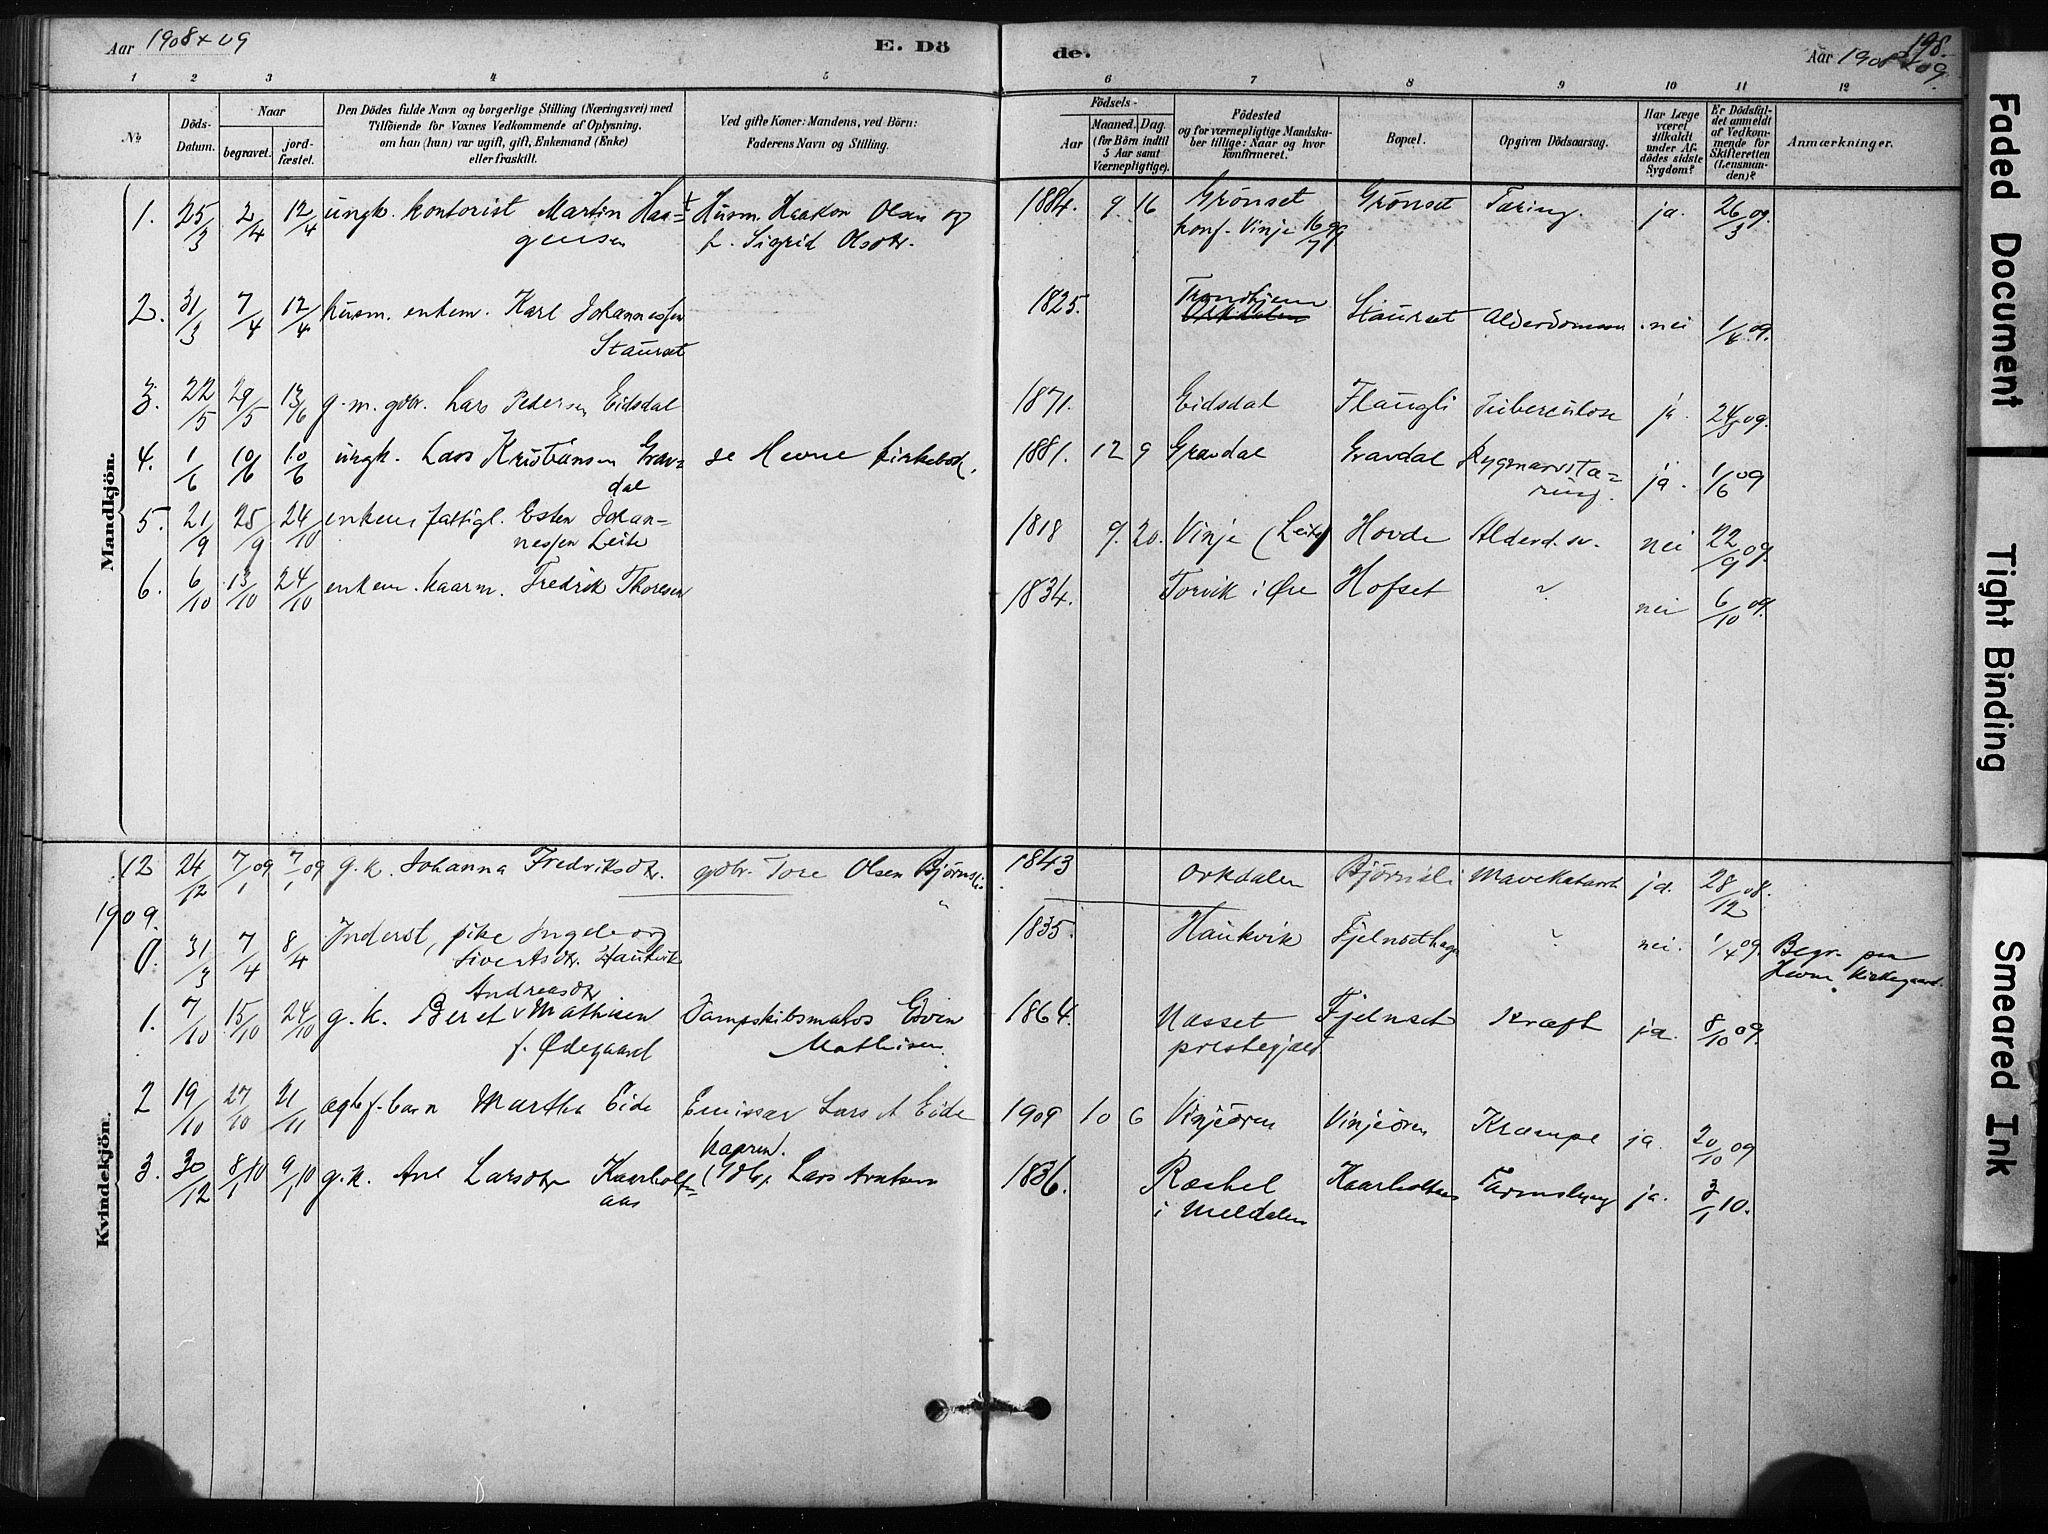 Aar 1908 + 09
E. Dö
de.
198.
Aar 1908 + 09.
1 2 3 4 5 6 7 8 9 10 11 12
No
Döds-Datum.
Naar
begravet.
jord-fæstet.
Den Dödes fulde Navn og borgerlige Stilling (Næringsvei) med
Tilföiende for Voxnes Vedkommende af Oplysning,
om han (hun) var ugift, gift, Enkemand (Enke)
eller fraskilt.
Ved gifte Koner: Mandens, ved Börn:
Faderens Navn og Stilling.
Födsels-
Aar
Maaned. Dag.
(for Börn indtil
5 Aar samt
Værnepligtige).
Födested
og for værnepligtige Mandska-
ber tillige: Naar og hvor
konfirmeret.
Bopæl.
Opgiven Dödsaarsag.
Har Læge
været
tilkaldt
under Af-
dödes sidste
Sygdom?
Er Dödsfal-
det anmeldt
af Vedkom-
mende for
Skifteretten
(Lensman-
den)?
Anmærkninger.
Mandkjön.
1. 25/3 2/4 12/4 ungk. kontorist Martin Haa- Husm. Haakon Olsen og 1884. 9. 16 Grönset Grönset Tæring. ja. 26/3 09.
gensen h. Sigrid Olsdtr. konf. Vinje 16/7 99
2. 31/3 7/4 12/4 husm. enkem. Karl Johannessen 1825. Trondhjem Stauset Alderdommen nei 1/4 09.
Stauset Orkdalen
3. 22/5 29/5 13/6 g.m. gbr. Lars Pedersen Eidsdal 1871. Eidsdal Flaugli Tuberculose ja. 24/5 09.
4. 1/6 10/6 10/6 ungk. Lars Kristiansen Grav- se Hevne kirkebok. 1881. 12 9 Gravdal Gravdal Rygmarvstæ- ja. 1/6 09
dal ring.
5. 21/9 25/9 24/10 enkem fattigl. Esten Johan- 1818 9. 20. Vinje (Leite) Hovde Alderd. sv. nei 22/9 09.
nessen Leite
6. 6/10 13/10 24/10 enkem. kaarm. Fredrik Thoresen 1834. Torvik i Øre Hofset " nei 6/10 09.
Kvindekjön.
12 24/12 7/1 09 7/1 09 g.k. Johanna Fredriksdtr. gdbr. Tore Olsen Bjørnsli 1843 Orkdalen Bjørnsli Mavekatarrh ja. 28/12 08.
1909.
0. 31/3 7/4 8/4 Inderst, pike Ingeborg 1835. Haukvik Fjelnsethagen " nei. 1/4 09. Begr. paa
Sivertsdtr. Haukvik Hevne kirkegaard.
Andreasdtr
1. 7/10 15/10 24/10 g.k. Beret Mathisen Dampskibsmatros Edvin 1864. Næsset Fjelnset Kræft ja. 8/10 09.
f. Ødegaard Mathisen. prestegjæld
2 19/10 27/10 21/11 ægtef. barn Martha Eide Emissær Lars Eide 1909 10 6 Vinjeøren Vinjeøren Krampe ja. 20/10 09
3. 30/12 8/1 10 9/1 10 g.k. Ane Larsdtr Kaarholt- Lars Arntsen 1836. Ræshel Kaarholtaas ja. 3/1 10.
aas i Meldalen
Faded Document
Tight Binding
Smeared Ink